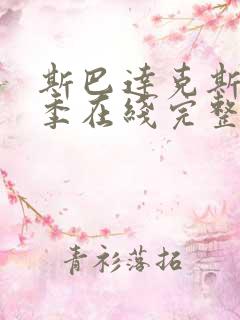 斯巴达克斯
季在线完整
青衫落拓